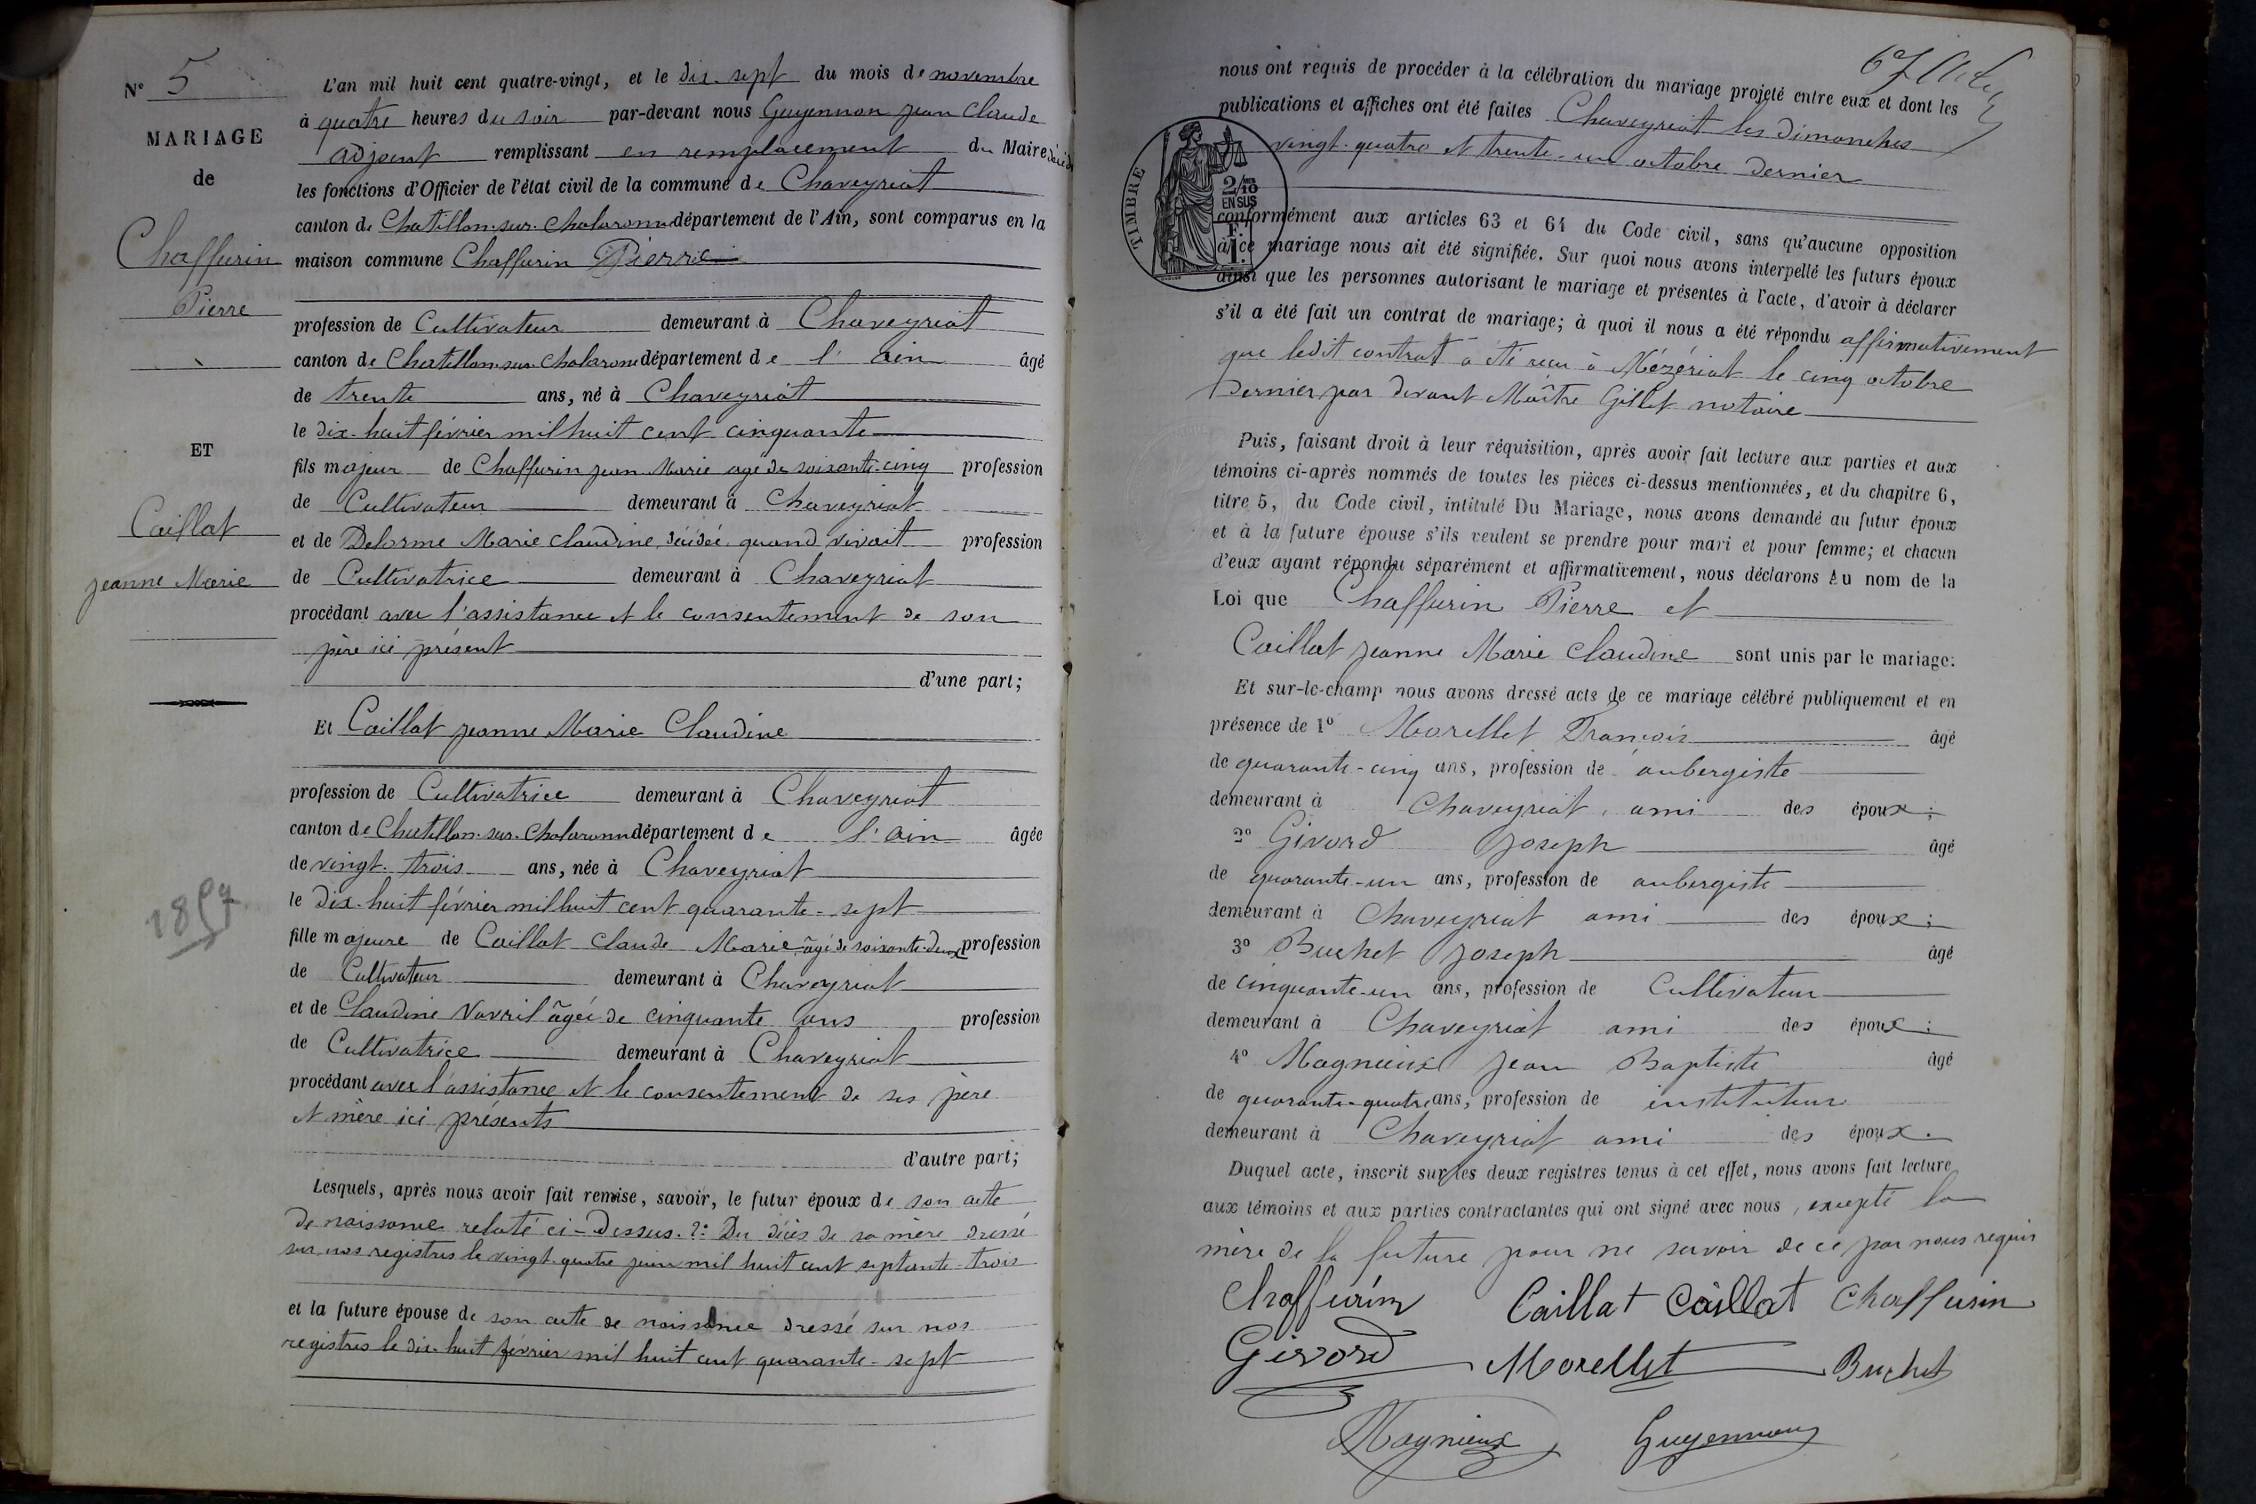 N° 5
MARIAGE
de
Chaffurin
Pierre
ET
Caillat
jeanne Marie
1857
L'an mil huit cent quatre-vingt, et le dix-sept du mois de novembre
à quatre heures du soir par-devant nous Guyennon jean Claude
adjoint remplissant en remplacement du Maire décédé
les fonctions d'Officier de l'état civil de la commune de Chaveyriat
canton de Chatillon-sur-Chalaronne département de l'Ain, sont comparus en la
maison commune Chaffurin Pierre
profession de Cultivateur demeurant à Chaveyriat
canton de Chatillon-sur-Chalaronne département de l'ain âgé
de trente ans, né à Chaveyriat
le dix-huit février mil huit cent cinquante
fils majeur de Chaffurin jean Marie agé de soixante-cinq profession
de Cultivateur demeurant à Chaveyriat
et de Delorme Marie Claudine, décédée quand vivait profession
de Cultivatrice demeurant à Chaveyriat
procédant avec l'assistance et le consentement de son
père ici présent
d'une part;
Et Caillat jeanne Marie Claudine
profession de Cultivatrice demeurant à Chaveyriat
canton de Chatillon-sur-Chalaronne département de l'ain âgée
de vingt-trois ans, née à Chaveyriat
le dix-huit février mil huit cent quarante-sept
fille majeure de Caillat Claude Marie âgé de soixante-deux profession
de Cultivateur demeurant à Chaveyriat
et de Claudine Vavril âgée de cinquante ans profession
de Cultivatrice demeurant à Chaveyriat
procédant avec l'assistance et le consentement de ses père
et mère ici présents
d'autre part;
Lesquels, après nous avoir fait remise, savoir, le futur époux de son acte
de naissance relaté ci-dessus. 2° Du décès de sa mère dressé
sur nos registres le vingt-quatre juin mil huit cent septante-trois
et la future épouse de son acte de naissance dressé sur nos
registres le dix-huit février mil huit cent quarante-sept
67
nous ont requis de procéder à la célébration du mariage projeté entre eux et dont les
publications et affiches ont été faites Chaveyriat les dimanches
vingt-quatre et trente-un octobre dernier
TIMBRE
2/10
EN SUS
conformément aux articles 63 et 64 du Code civil, sans qu'aucune opposition
à ce mariage nous ait été signifiée. Sur quoi nous avons interpellé les futurs époux
ainsi que les personnes autorisant le mariage et présentes à l'acte, d'avoir à déclarer
s'il a été fait un contrat de mariage; à quoi il nous a été répondu affirmativement
que ledit contrat a été reçu à Mézériat le cinq octobre
dernier par devant Maître Gillet notaire
Puis, faisant droit à leur réquisition, après avoir fait lecture aux parties et aux
témoins ci-après nommés de toutes les pièces ci-dessus mentionnées, et du chapitre 6,
titre 5, du Code civil, intitulé Du Mariage, nous avons demandé au futur époux
et à la future épouse s'ils veulent se prendre pour mari et pour femme; et chacun
d'eux ayant répondu séparément et affirmativement, nous déclarons Au nom de la
Loi que Chaffurin Pierre et
Caillat jeanne Marie Claudine sont unis par le mariage:
Et sur-le-champ nous avons dressé acte de ce mariage célébré publiquement et en
présence de 1° Morellet François âgé
de quarante-cinq ans, profession de aubergiste
demeurant à Chaveyriat, ami des époux;
2° Givord Joseph âgé
de quarante-un ans, profession de aubergiste
demeurant à Chaveyriat ami des époux;
3° Buchet Joseph âgé
de cinquante-un ans, profession de Cultivateur
demeurant à Chaveyriat ami des époux;
4° Magnieux Jean Baptiste âgé
de quarante-quatre ans, profession de instituteur
demeurant à Chaveyriat ami des époux.
Duquel acte, inscrit sur les deux registres tenus à cet effet, nous avons fait lecture
aux témoins et aux parties contractantes qui ont signé avec nous, excepté la
mère de la future pour ne savoir de ce par nous requis
Chaffurin Caillat Caillat Chaffurin
Givord Morellet Buchet
Magnieux Guyennon